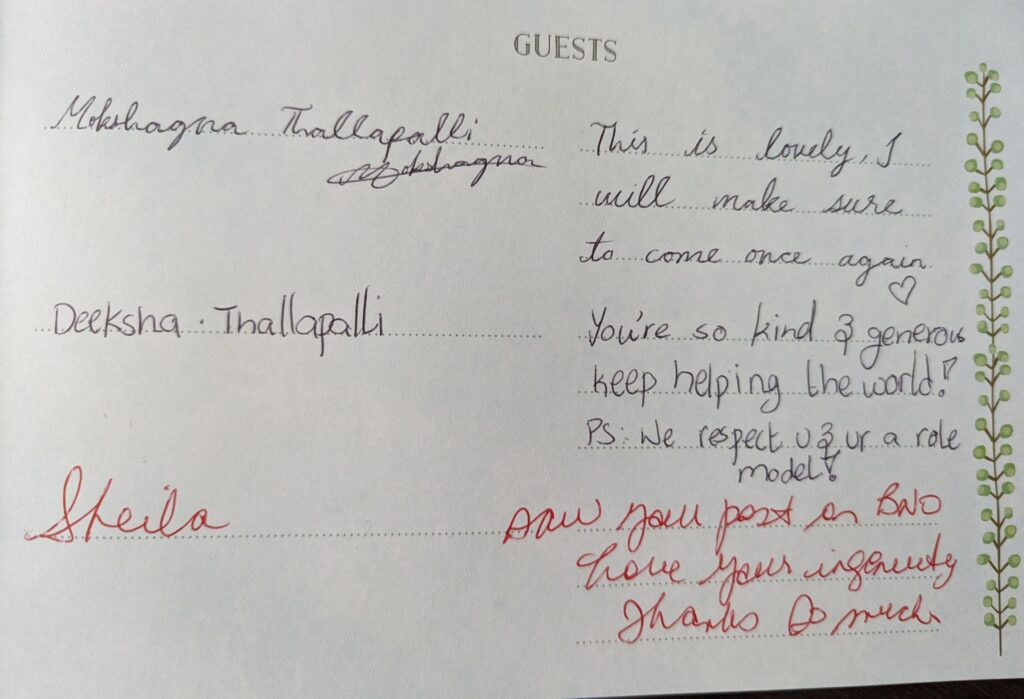 GUESTS
Mokshagna Thallapalli
Mokshagna
This is lovely, I
will make sure
to come once again
Deeksha. Thallapalli
You're so kind & generous
keep helping the world!
PS: We respect u & ur a role
model!
Sheila
Saw your post on BNO
Love your ingenuity
Thanks So much